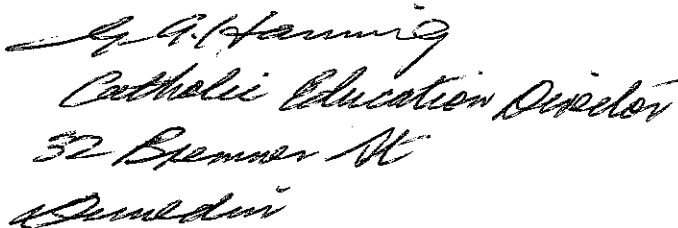 G. A. Hannig
Catholic Education Director
32 Bremner St
Dunedin